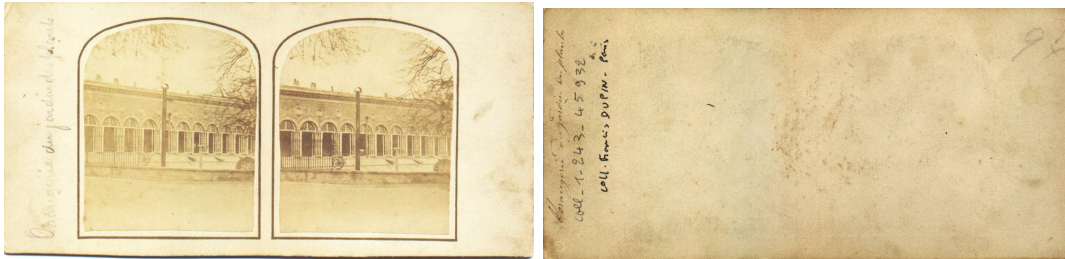 Orangerie du jardin des plantes
L'orangerie du jardin des plantes
Coll_1-243-45932
Coll. Francis DUPIN - Paris